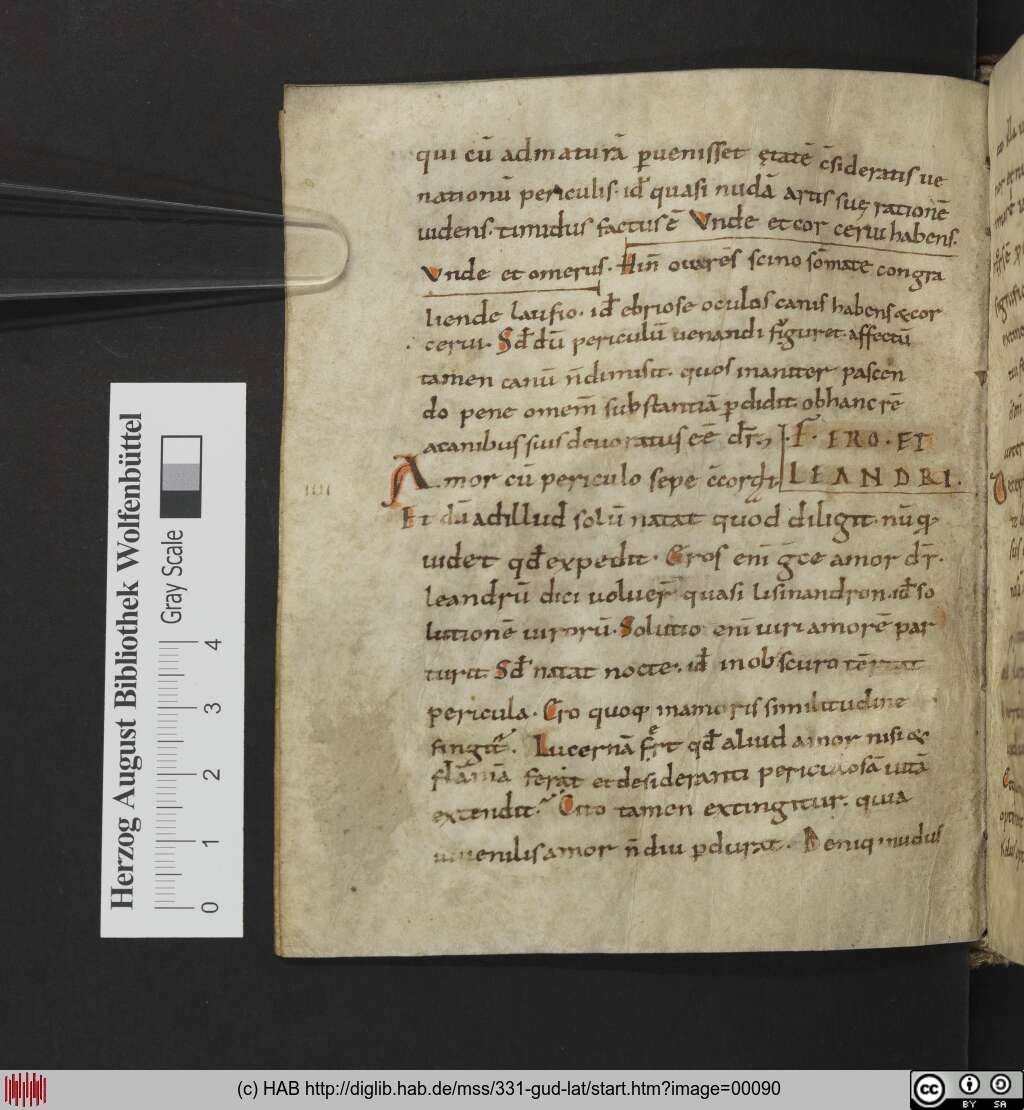 qui cū admaturā ꝑuenisset ętatē c̄sideratis ue
nationū periculis. id̄ quasi nudā artis suę rationē
uidens. timidus factus ē Vnde et cor cerui habens.
Vnde et omerus. Hin̄ ouarēs scino sōmate congra
liende lausio. id̄ ebriose oculos canis habens & cor
cerui. Sd̄ dū periculū uenandi figuret affectū
tamen canū n̄ dimisit. quos inaniter pascen
do pene omem̄ substantiā ꝑdidit ob hanc rē
acanibus suis deuoratus eē dr̄.
F. ERO. ET
LEANDRI.
Amor cū periculo sepe c̄cordat.
Et dū ad illud solū natat quod diligit. nūqꝫ
uidet qd̄ expedit. Eros eni ḡce amor dr̄.
leandrū dici uoluer̄ quasi lisinandron. id̄ so
lutionē uirorū. Solutio eni uiri amorē par
turit. Sd̄ natat nocte. id̄ in obscuro tēptat
pericula. Ero quoqꝫ inamoris similitudine
fingit. Lucernā fert qd̄ aliud amor nisi &
flāmā ferat et desideranti periculosā uitā
extendit. Cito tamen extingitur. quia
iuuenilis amor n̄ diu ꝑdurat. Deniqꝫ nudus
IIII
Herzog August Bibliothek Wolfenbüttel
Gray Scale
0 1 2 3 4
(c) HAB http://diglib.hab.de/mss/331-gud-lat/start.htm?image=00090
cc BY SA